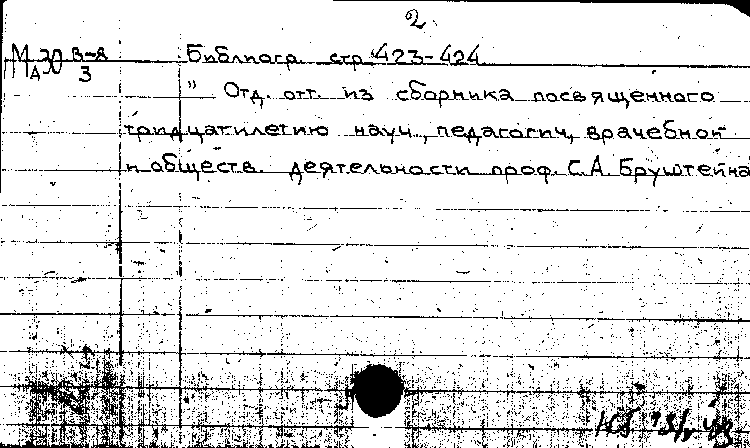 2
Библиогр. стр. 423-424
" Отд. отт. из сборника посвященного
тридцатилетию науч., педагогич., врачебной
и обществ. деятельности проф. С.А. Бруштейна